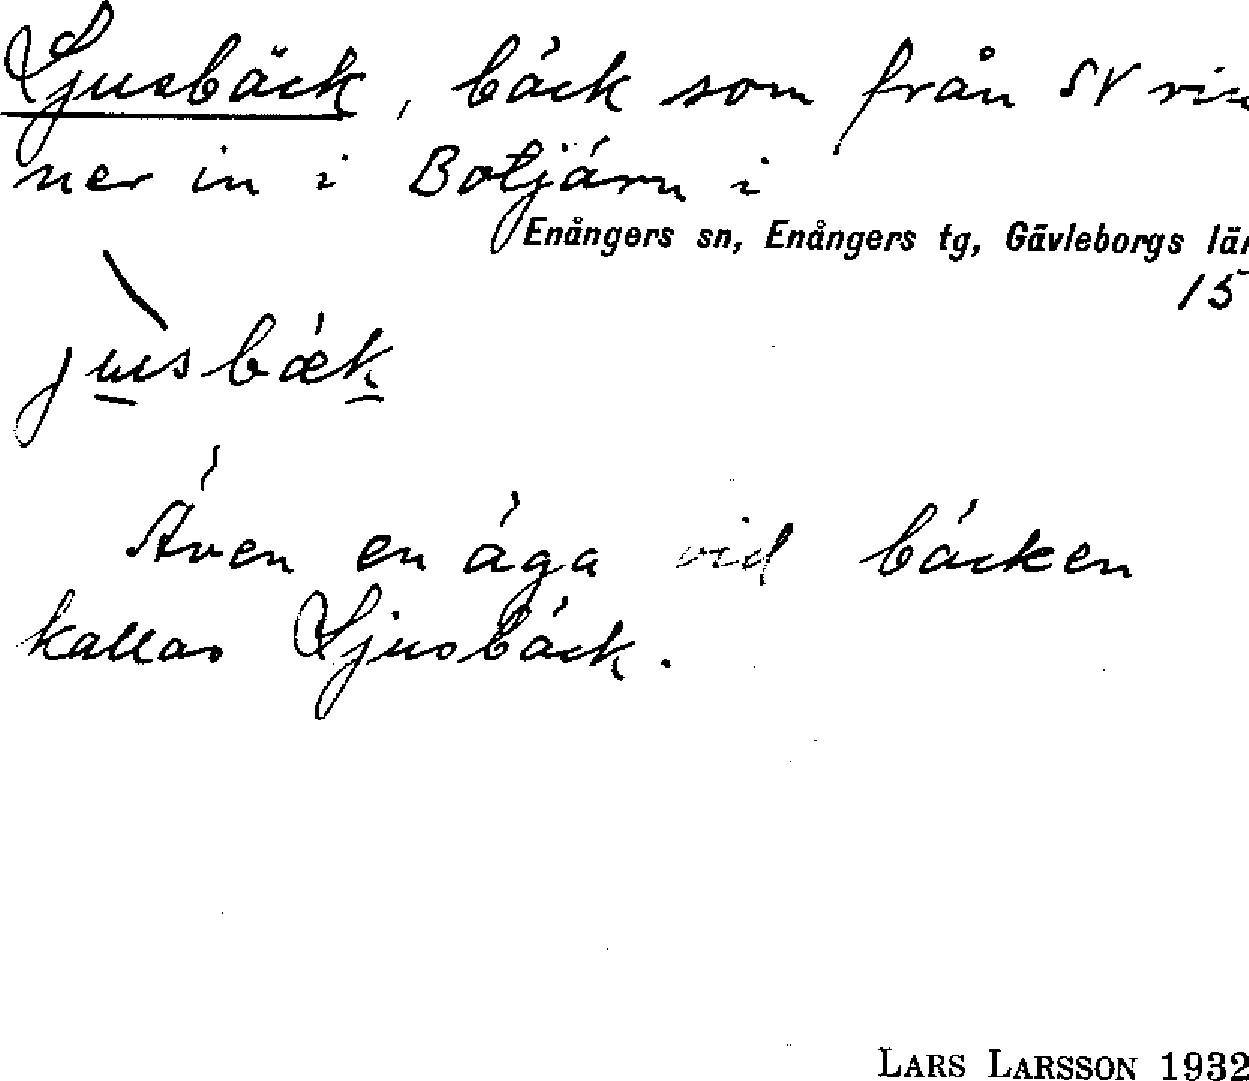 Ljusbäck, bäck som från SV rin
ner in i Botjärn i
Enångers sn, Enångers tg, Gävleborgs län
15
jusbæk
Även en äga vid bäcken
kallas Ljusbäck.
LARS LARSSON 1932